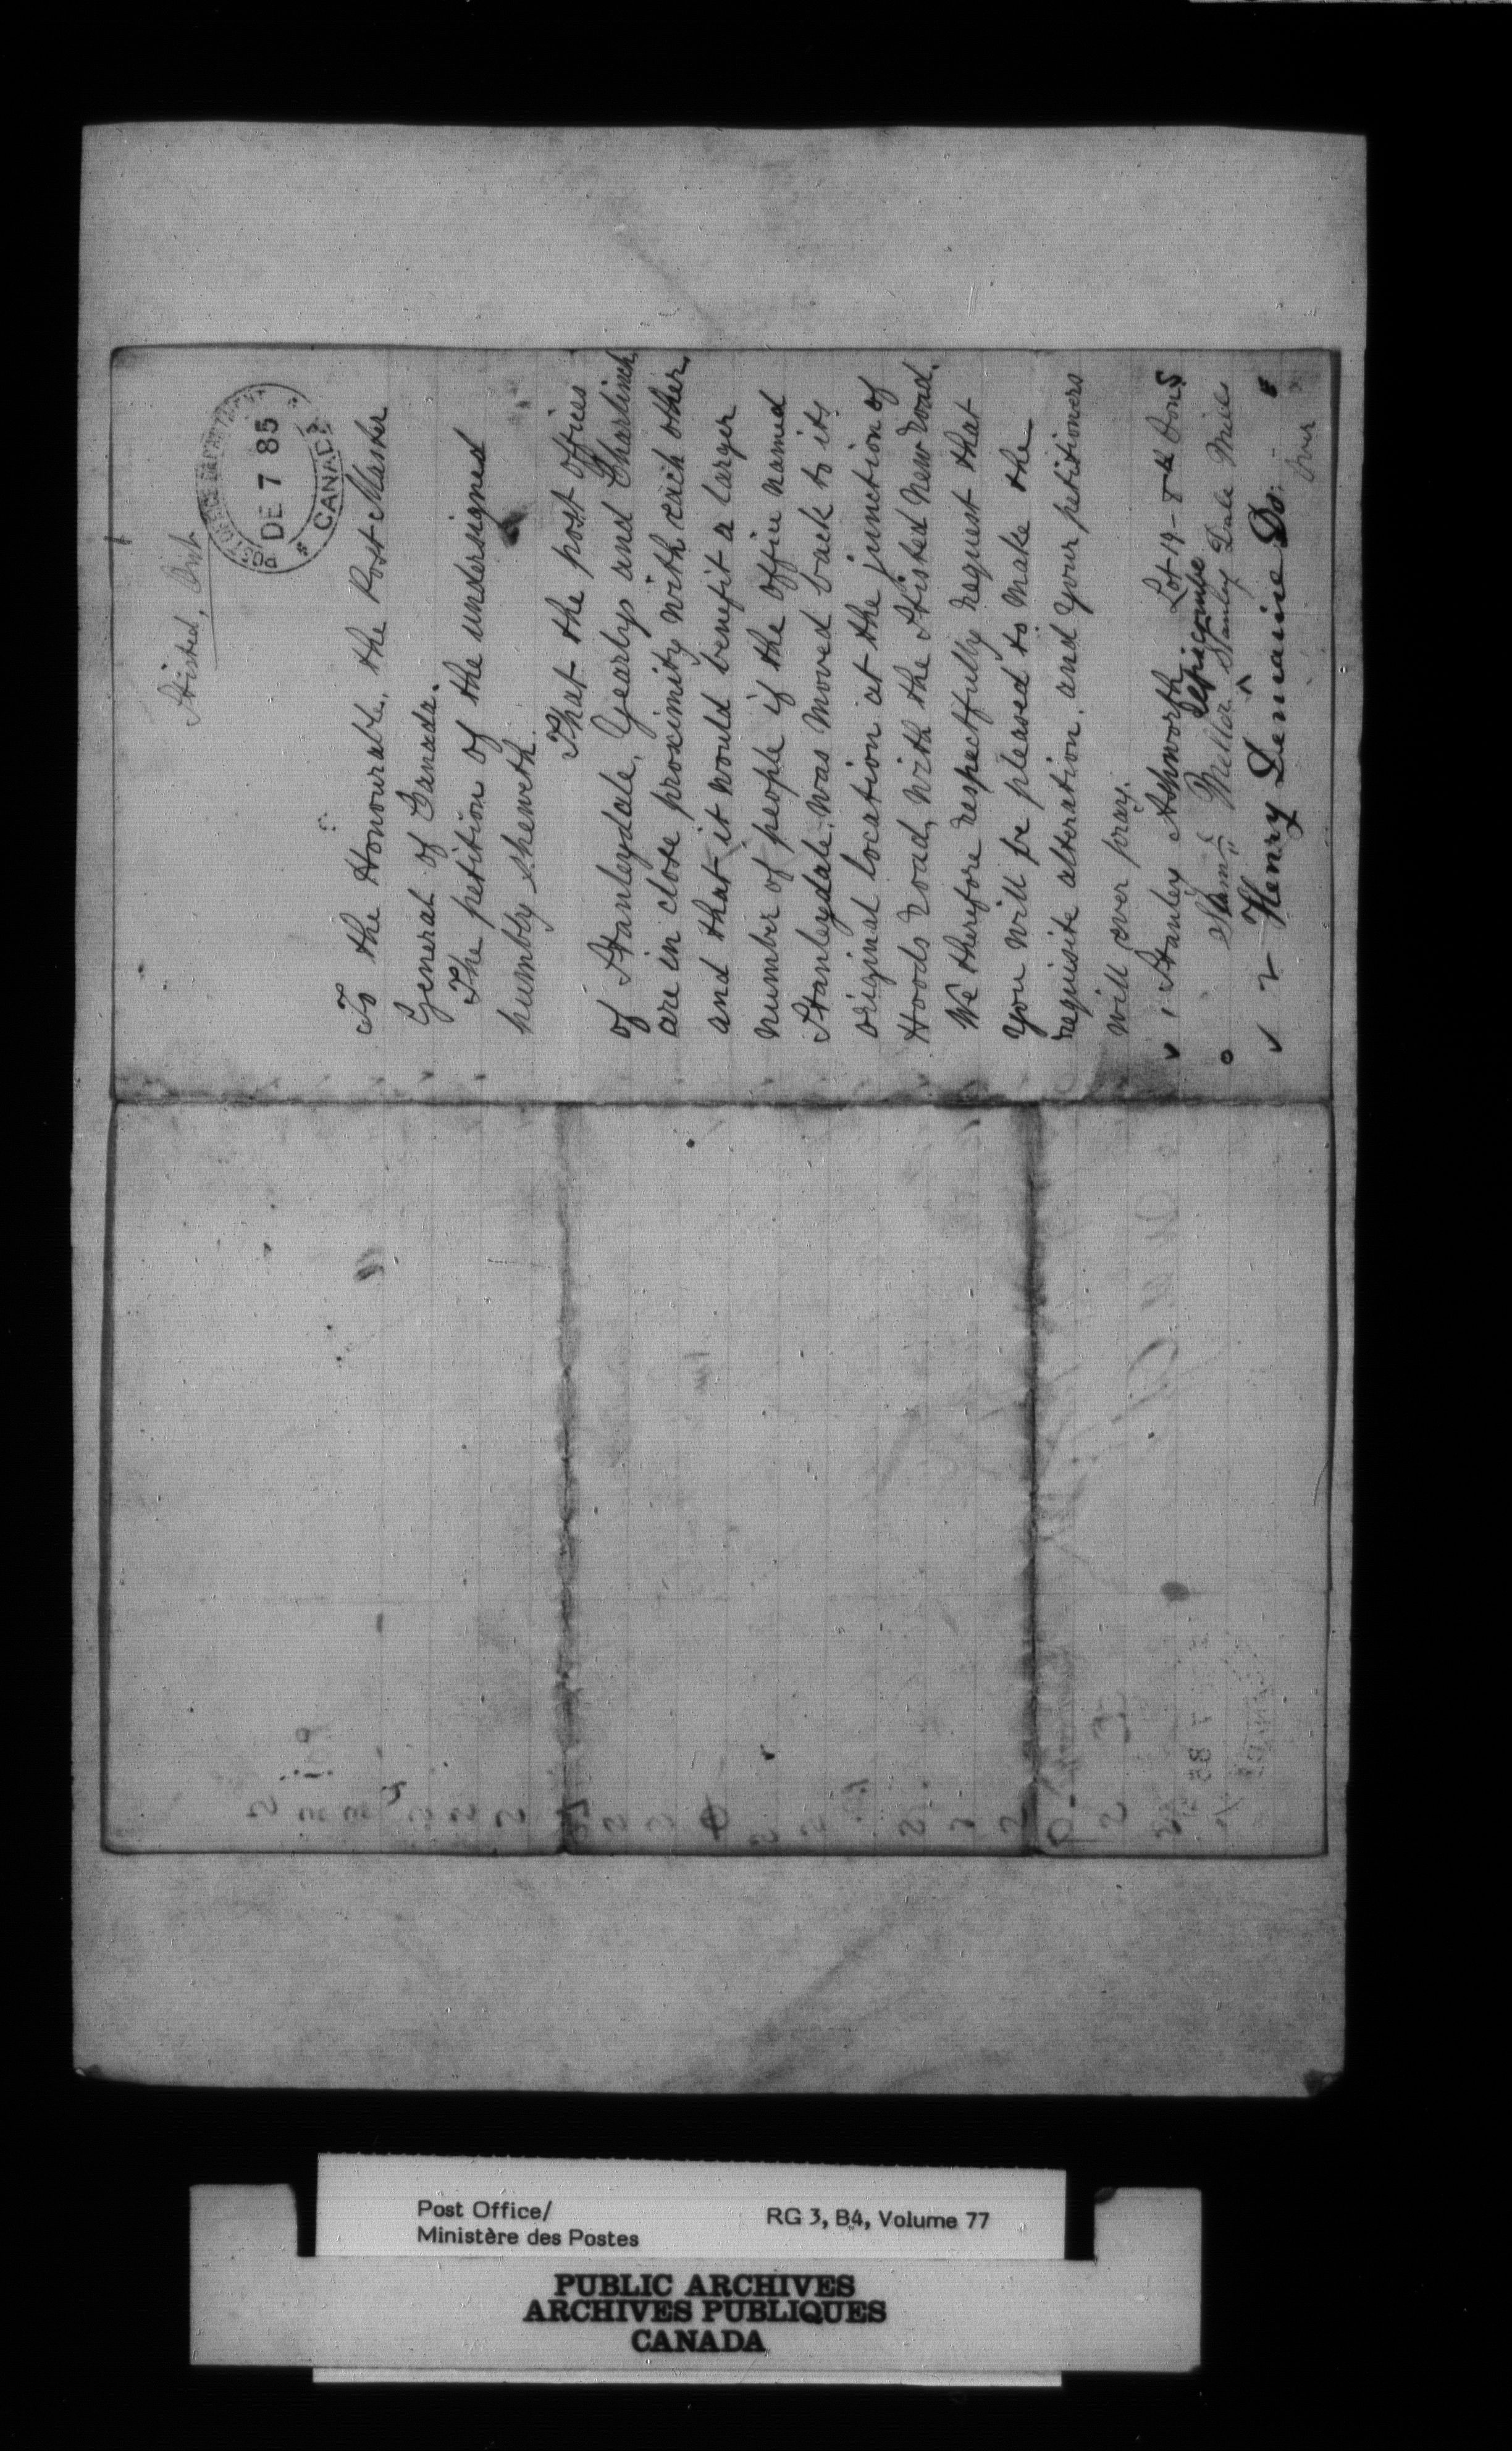 Stisted, Ont
POST OFFICE DEPARTMENT
DE 7 85
CANADA
To the Honourable, the Post Master
General of Canada.
The petition of the undersigned
humbly sheweth.
That the post offices
of Stanleydale, Yearlys and Charlinch,
are in close proximity with each other,
and that it would benefit a larger
number of people if the office named
Stanleydale, was moved back to its
original location at the junction of
Hoods road, with the Stisted new road.
We therefore respectfully request that
you will be pleased to make the
requisite alteration, and your petitioners
will ever pray.
1 Stanley Ashworth Lot 19 - 8th Con
Saml Mellor Stanley Dale Mills
2 Henry Lemaine Do. "
Over
Post Office/
Ministère des Postes
RG 3, B4, Volume 77
PUBLIC ARCHIVES
ARCHIVES PUBLIQUES
CANADA